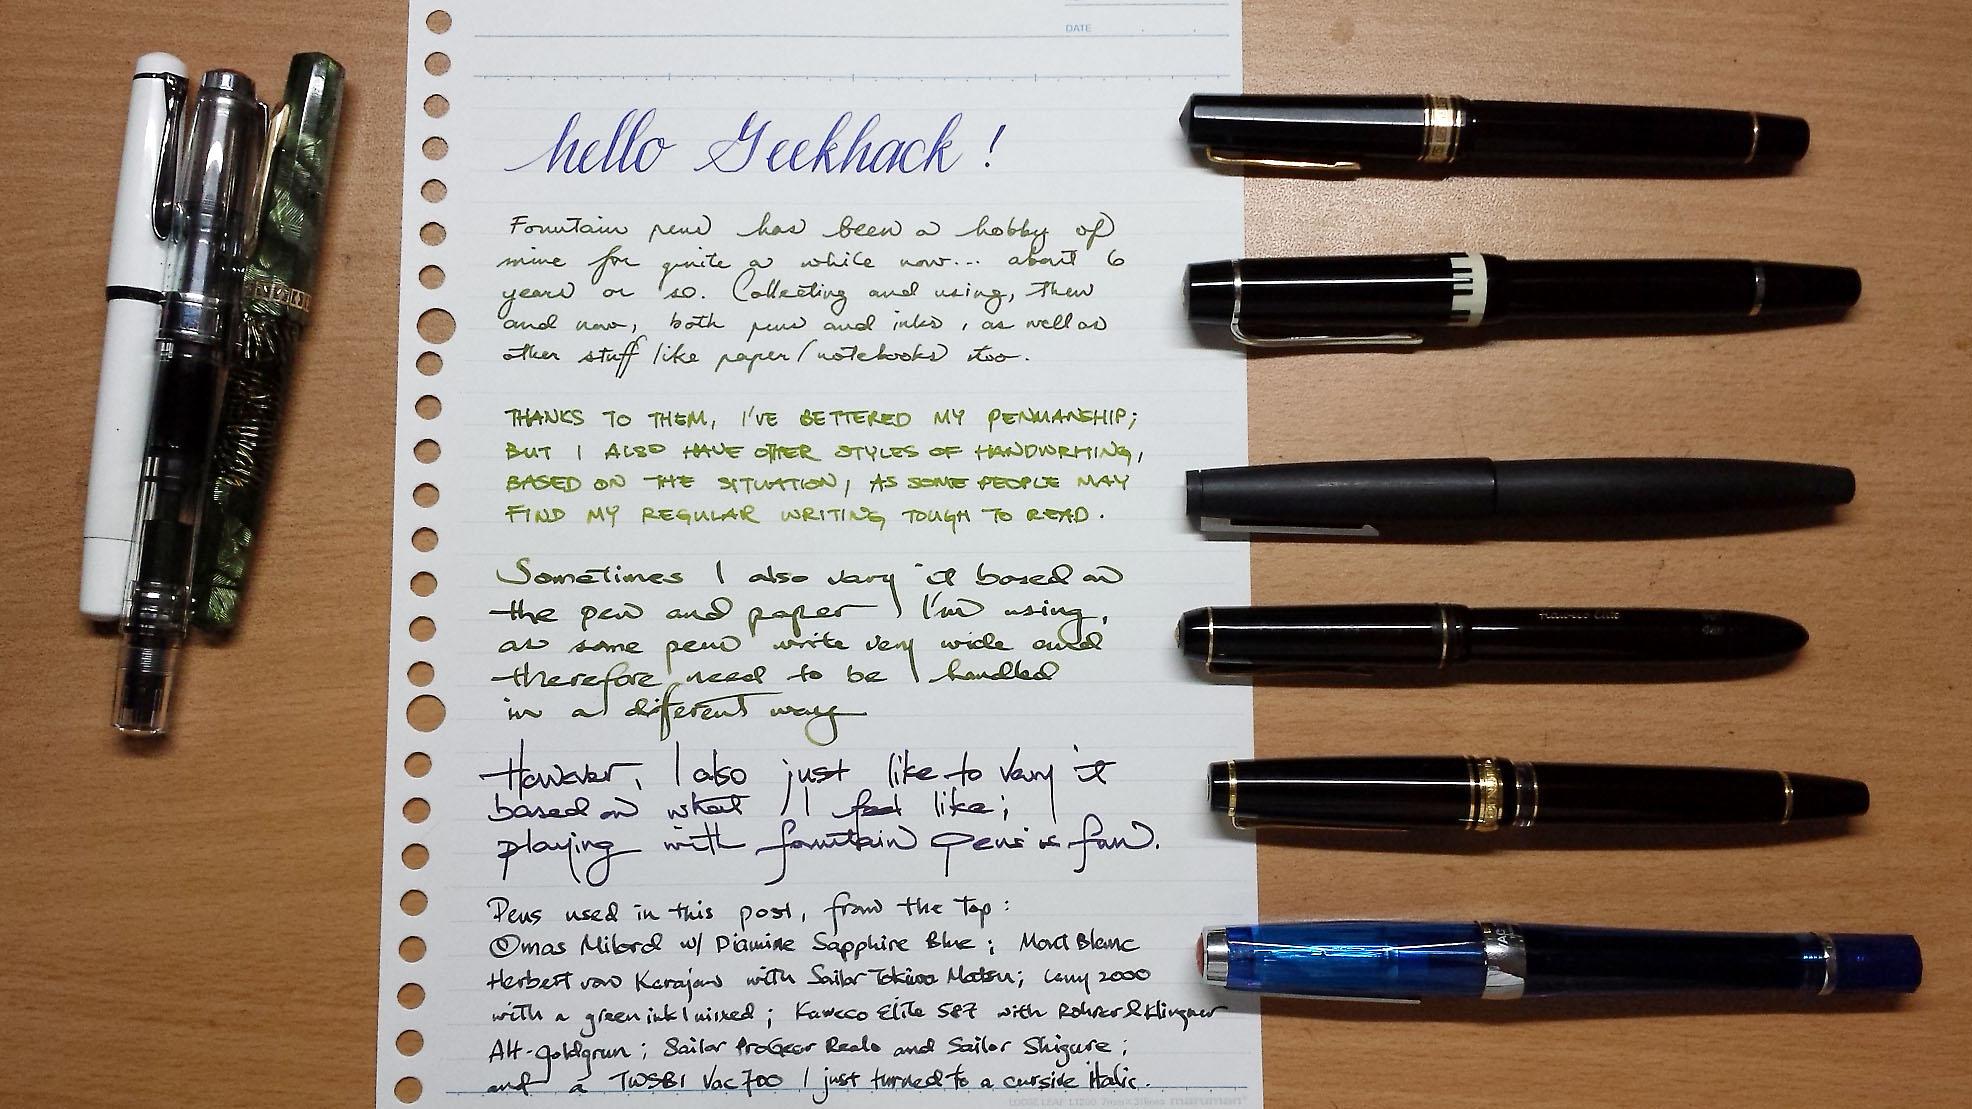 DATE
hello Geekhack !
Fountain pens has been a hobby of
mine for quite a while now... about 6
years or so. Collecting and using, then
and now, both pens and inks, as well as
other stuff like paper/notebooks too.
THANKS TO THEM, I'VE BETTERED MY PENMANSHIP;
BUT I ALSO HAVE OTHER STYLES OF HANDWRITING,
BASED ON THE SITUATION, AS SOME PEOPLE MAY
FIND MY REGULAR WRITING TOUGH TO READ.
Sometimes I also vary it based on
the pen and paper I'm using,
as some pens write very wide and
therefore need to be handled
in a different way
However, I also just like to vary it
based on what I feel like;
playing with fountain pens is fun.
Pens used in this post, from the top:
Omas Milord w/ Diamine Sapphire Blue; Mont Blanc
Herbert von Karajan with Sailor Tokiwa Matsu; Lamy 2000
with a green ink I mixed; Kaweco Elite 587 with Rohrer & Klingner
Alt-goldgrun; Sailor ProGear Realo and Sailor Shigure;
and a TWSBI Vac 700 I just turned to a cursive Italic.
LOOSE LEAF L1200 7mm×31lines maruman